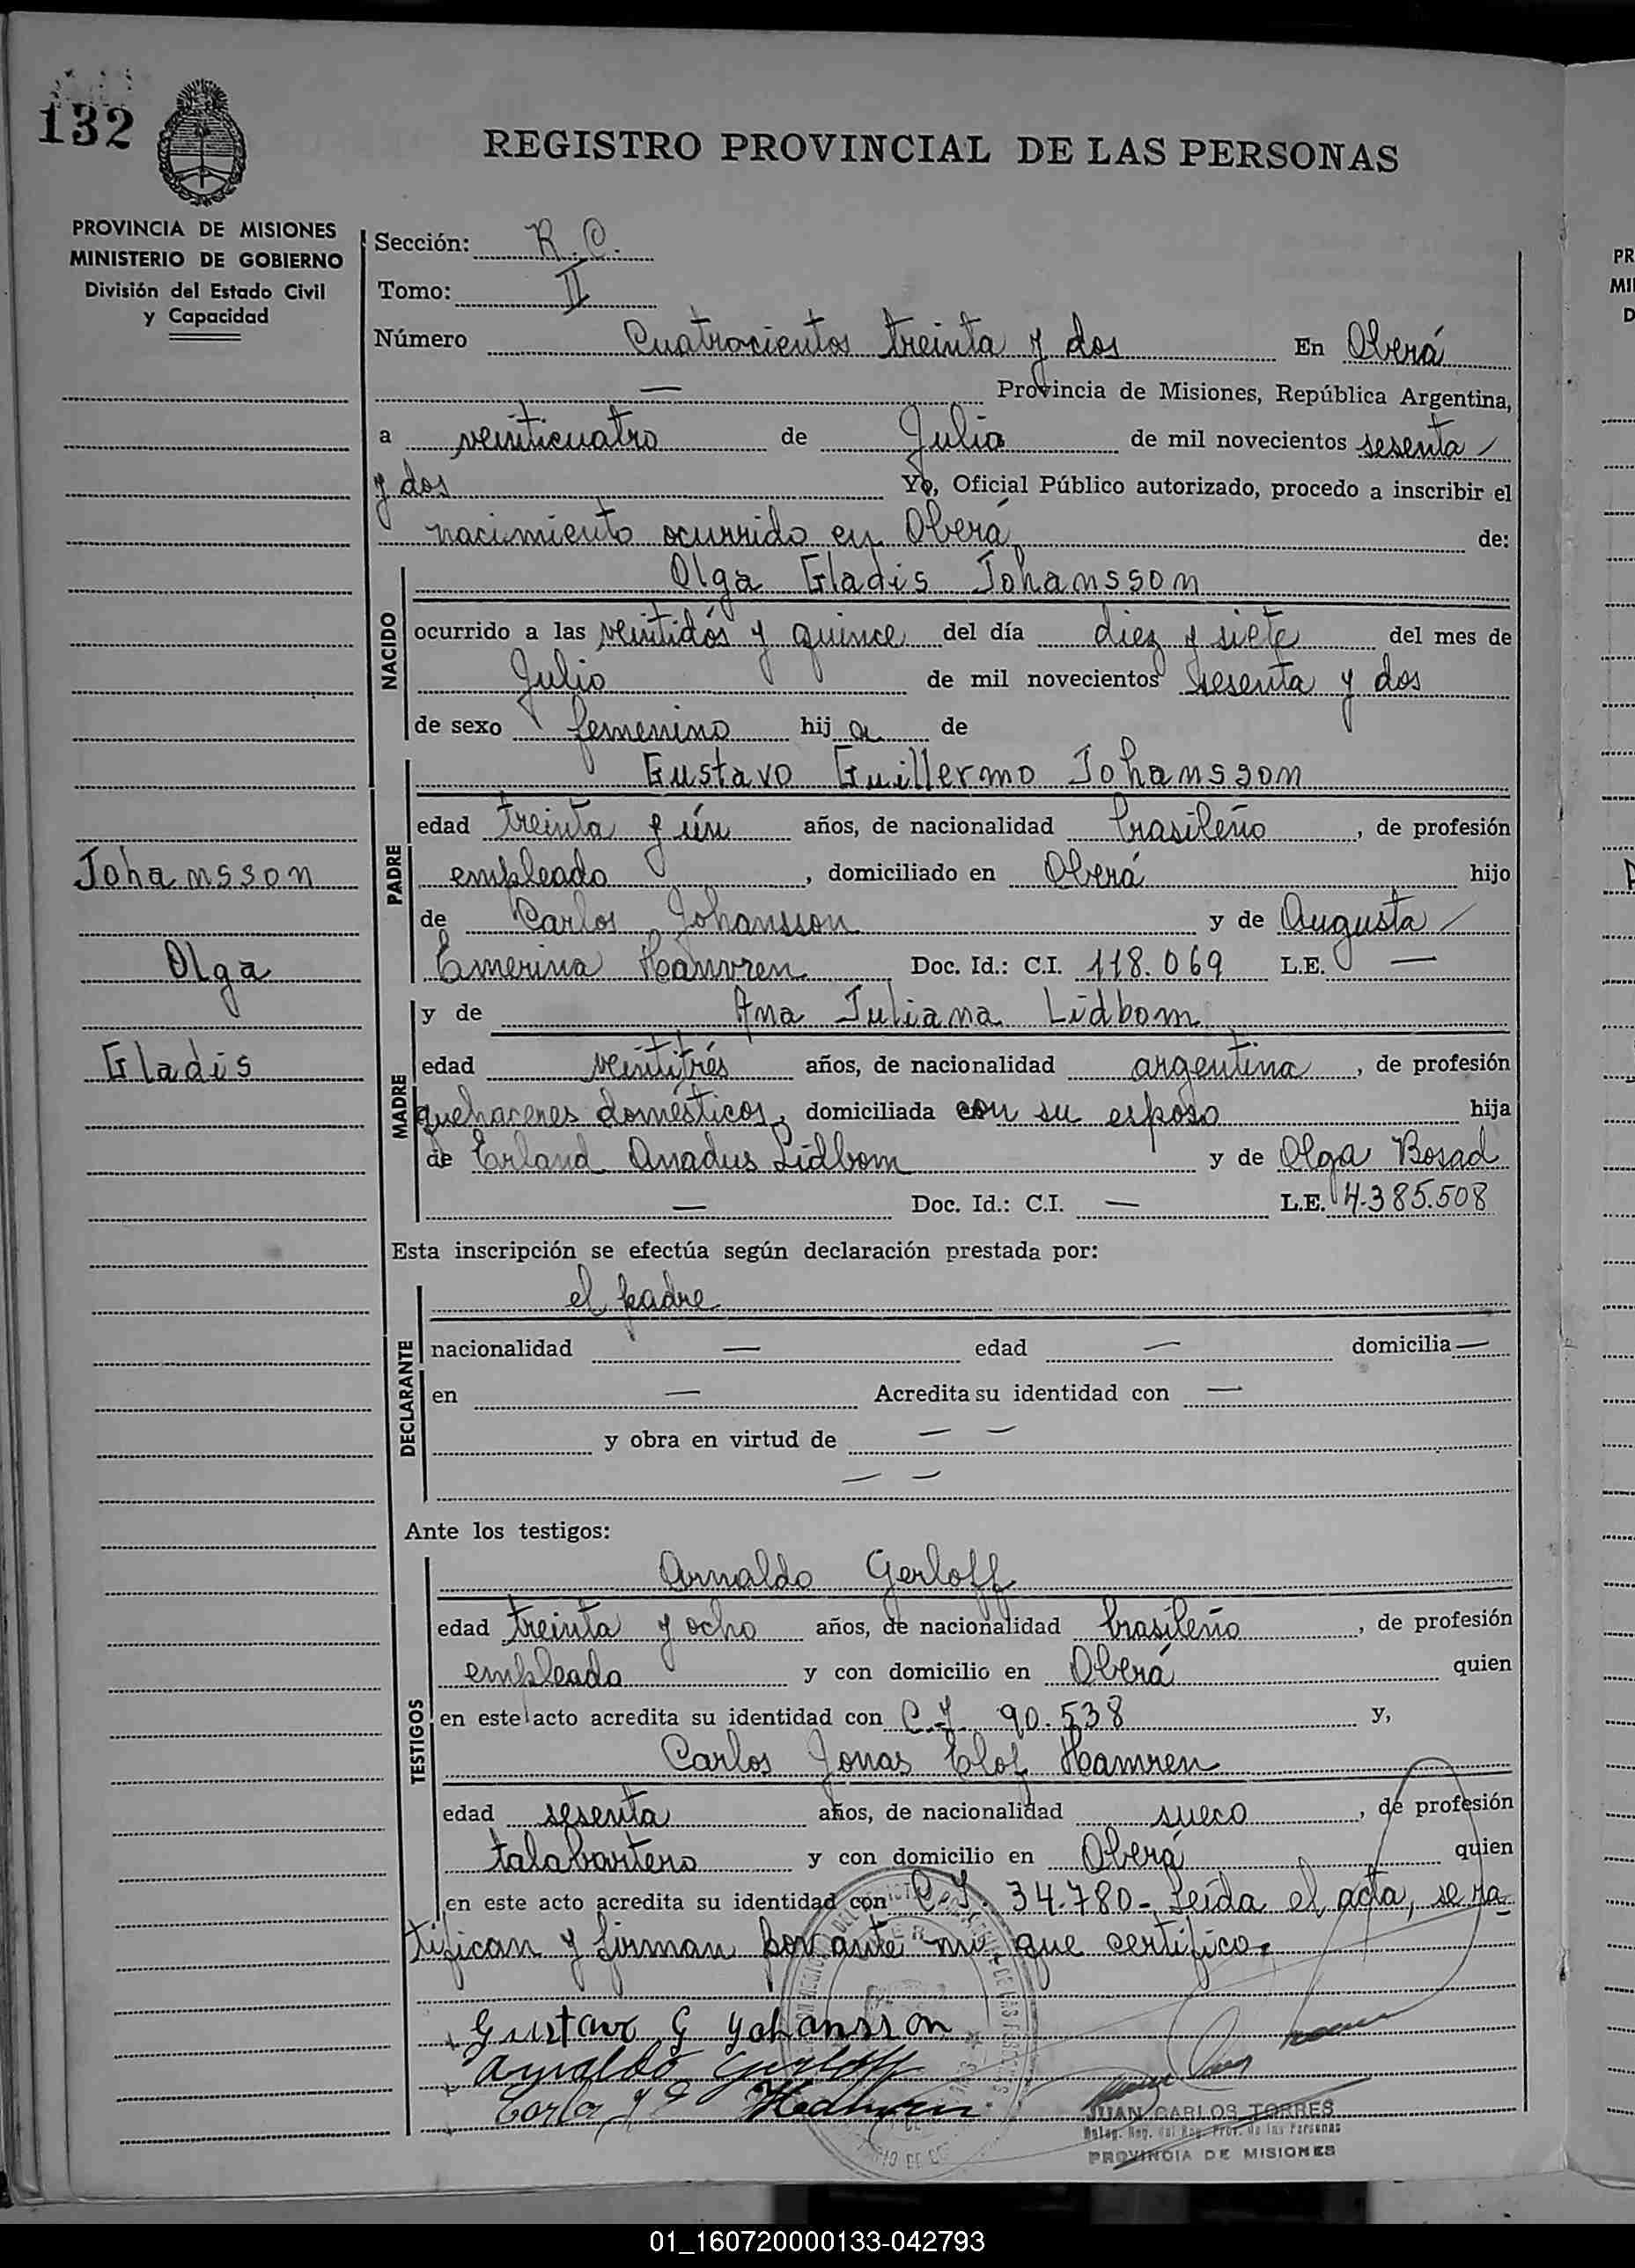 132
REGISTRO PROVINCIAL DE LAS PERSONAS
PROVINCIA DE MISIONES
MINISTERIO DE GOBIERNO
División del Estado Civil
y Capacidad
Sección: R.C.
Tomo: II
Número Cuatrocientos treinta y dos En Oberá
— Provincia de Misiones, República Argentina,
a veinticuatro de Julio de mil novecientos sesenta
y dos Yo, Oficial Público autorizado, procedo a inscribir el
nacimiento ocurrido en Oberá de:
NACIDO
Olga Gladis Johansson
ocurrido a las veintidós y quince del día diez y siete del mes de
Julio de mil novecientos sesenta y dos
de sexo femenino hija de
PADRE
Gustavo Guillermo Johansson
edad treinta y ún años, de nacionalidad brasileño, de profesión
empleado, domiciliado en Oberá hijo
de Carlos Johansson y de Augusta
Emerina Hamren Doc. Id.: C.I. 118.069 L.E. —
Johansson
Olga
Gladis
MADRE
y de Ana Juliana Lidbom
edad veintitrés años, de nacionalidad argentina, de profesión
quehaceres domésticos, domiciliada con su esposo hija
de Erland Anadus Lidbom y de Olga Bosad
— Doc. Id.: C.I. — L.E. 4.385.508
Esta inscripción se efectúa según declaración prestada por:
DECLARANTE
el padre
nacionalidad — edad — domicilia —
en — Acredita su identidad con —
y obra en virtud de — —
— —
Ante los testigos:
TESTIGOS
Arnaldo Gerloff
edad treinta y ocho años, de nacionalidad brasileño, de profesión
empleado y con domicilio en Oberá quien
en este acto acredita su identidad con C.I. 90.538 y,
Carlos Jonas Elof Hamren
edad sesenta años, de nacionalidad sueco, de profesión
talabartero y con domicilio en Oberá quien
en este acto acredita su identidad con C.I. 34.780- Leída el acta, se ra-
tifican y firman por ante mi que certifico.
Gustavo G Yohansson
Arnaldo Gerloff
Carlos J E Hamren
JUAN CARLOS TORRES
Deleg. Reg. del Reg. Prov. de las Personas
PROVINCIA DE MISIONES
01_160720000133-042793